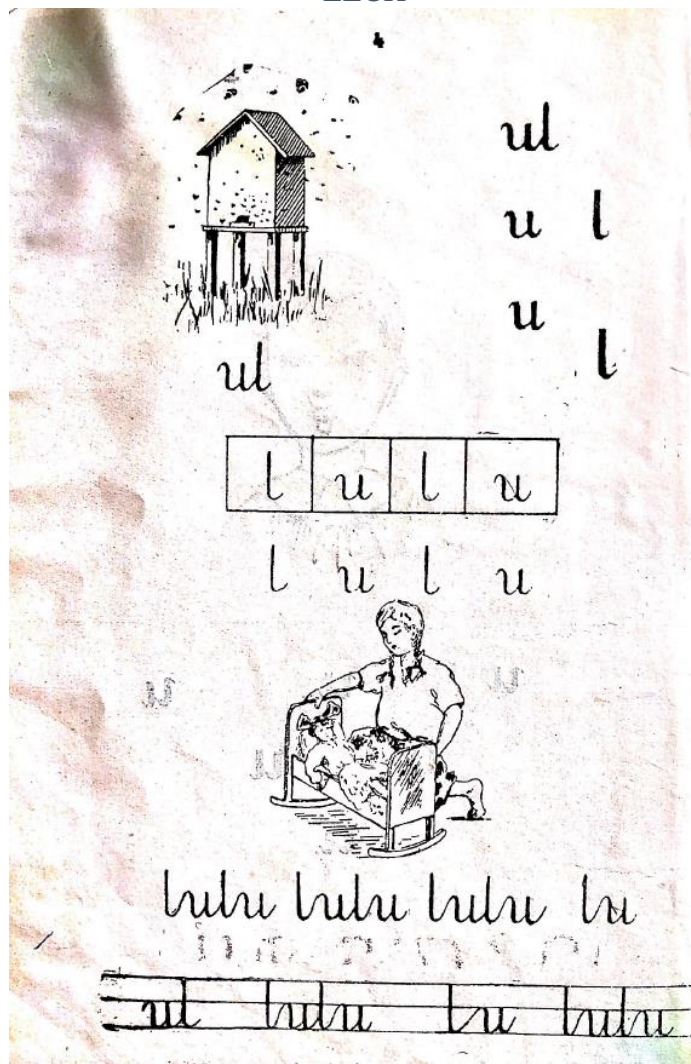 4
ul
u l
u l
ul
l u l u
l u l u
lulu lulu lulu lu
ul lulu lu lulu